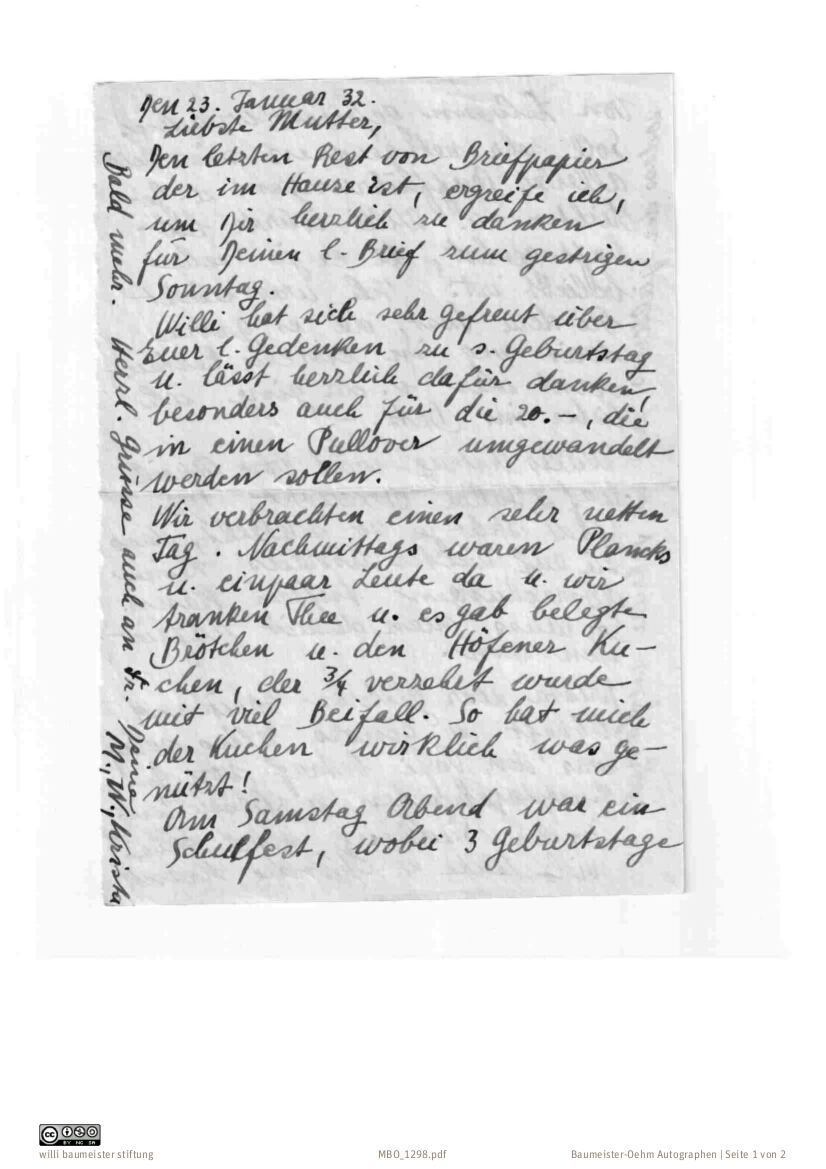 Den 23. Januar 32.
Liebste Mutter,
Den letzten Rest von Briefpapier
der im Hause ist, ergreife ich,
um Dir herzlich zu danken
für Deinen l. Brief zum gestrigen
Sonntag.
Willi hat sich sehr gefreut über
Euer l. Gedenken zu s. Geburtstag
u. lässt herzlich dafür danken,
besonders auch für die 20.–, die
in einen Pullover umgewandelt
werden sollen.
Wir verbrachten einen sehr netten
Tag. Nachmittags waren Plancks
u. einpaar Leute da u. wir
tranken Thee u. es gab belegte
Brötchen u. den Höfener Ku–
chen, der 3/4 verzehrt wurde
mit viel Beifall. So hat mich
der Kuchen wirklich was ge–
nützt!
Am Samstag Abend war ein
Schulfest, wobei 3 Geburtstage
Bald mehr. Herzl. Grüsse auch an Fr. Deine
M., W., Krista
CC BY NC SA
willi baumeister stiftung
MBO_1298.pdf
Baumeister-Oehm Autographen | Seite 1 von 2